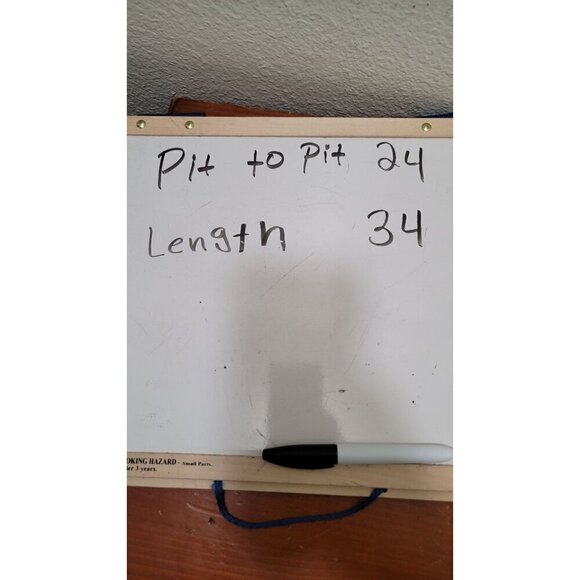 Pit to Pit 24
Length 34
OKING HAZARD - Small Parts.
er 3 years.